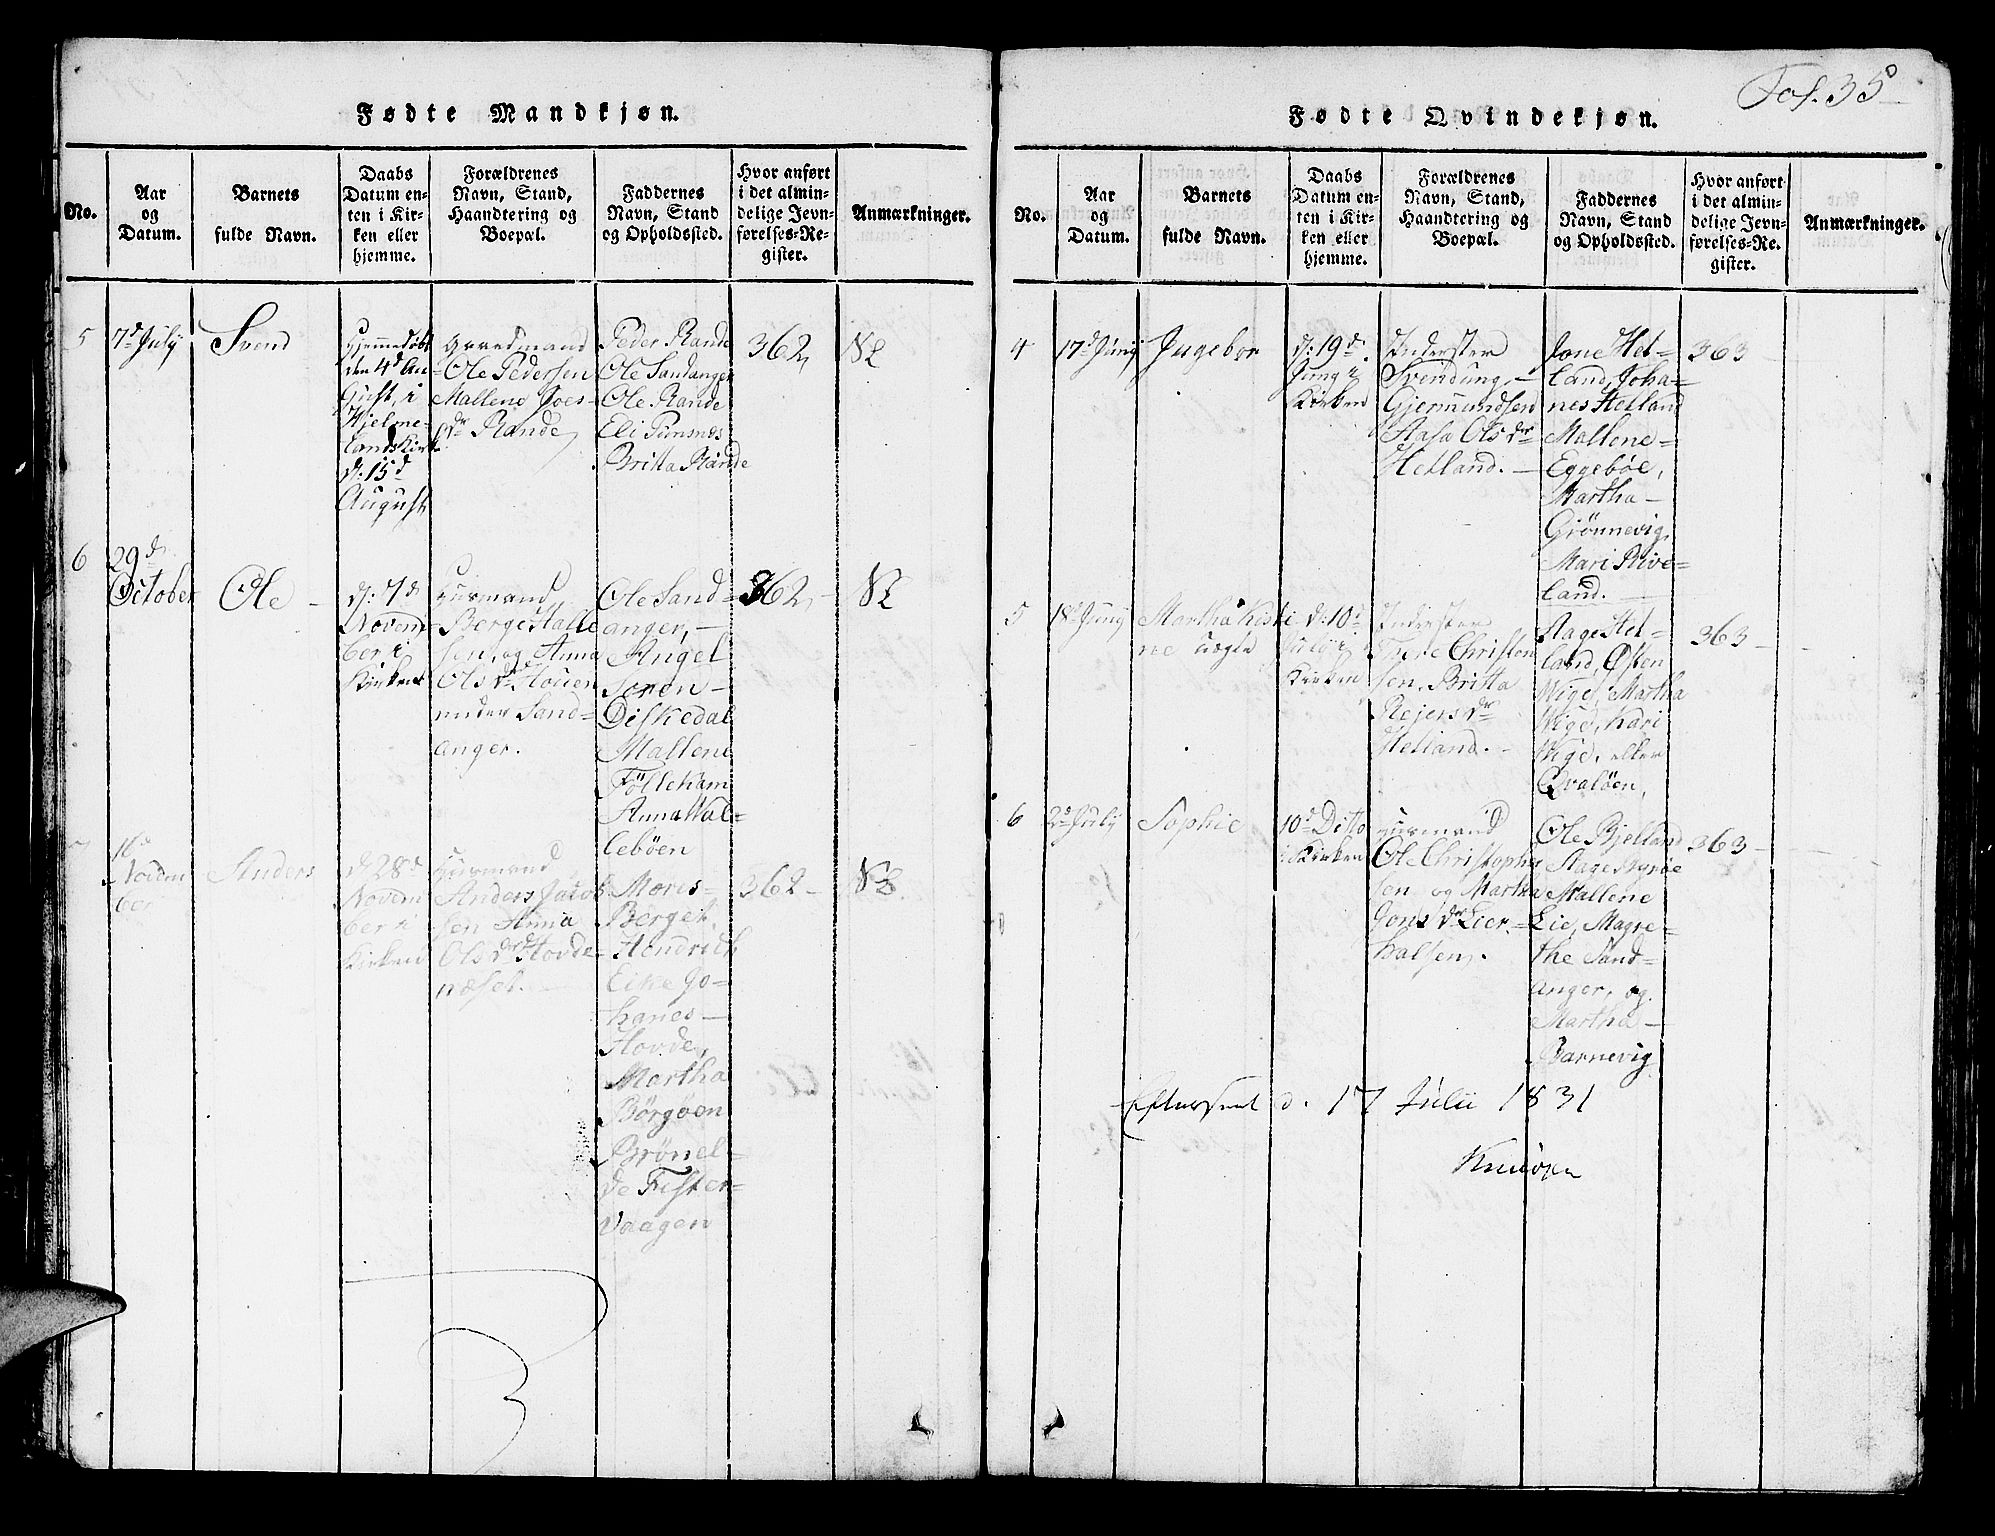 Fol. 35
Fødte Mandkjøn.
No.
Aar
og
Datum.
Barnets
fulde Navn.
Daabs
Datum en-
ten i Kir-
ken eller
hjemme.
Forældrenes
Navn, Stand,
Haandtering og
Boepæl.
Faddernes
Navn, Stand
og Opholdssted.
Hvor anført
i det almin-
delige Jevn-
førelses-Re-
gister.
Anmærkninger.
5
7d July
Svend
Hjemmedøbt
den 4d Au-
gust, i
Hjelme-
lands Kirk
d: 15d
August
Gaardmand
Ole Pedersen
Mallene Joes-
dr Rande
Peder Rande
Ole Sandanger
Ole Rande
Eli Punsnes
Britta Rande
362
6
29d
October
Ole
d: 7d
Novem-
ber i
Kirken
Huusmand
Berge Halle
sen, og Anna
Ols dr Houen
under Sand=
anger.
Ole Sand=
anger,
Angel
Soren
Diskedal
Mallene
Tölleham
Anna Wal=
leböen
362
7
16d
Novem
ber
Anders
d 28d
Novem
ber i
Kirken
Huusmand
Anders Jacob
sen Anna
Ols dr Hovde=
næset.
Mores=
Berget,
Hendrich
Eike Jo=
hanes
Hovde,
Martha
Börgöen
Brönel=
de Fister=
Vaagen
362
Fødte Qvindekjøn.
No.
Aar
og
Datum.
Barnets
fulde Navn.
Daabs
Datum en-
ten i Kir-
ken eller
hjemme.
Forældrenes
Navn, Stand,
Haandtering og
Boepæl.
Faddernes
Navn, Stand
og Opholdssted.
Hvor anført
i det almin-
delige Jevn-
førelses-Re-
gister.
Anmærkninger.
4
17d Juny
Ingebor
d: 19d
Juny i
Kirken
Inderster
Svendung
Gjermundsen
Aasa Ols dr
Hetland.
Jone Het=
land, Joha=
nes Hetland
Mallene
Eggeböe,
Martha
Grönnevig,
Mari Rive=
land.
363
5
18d Juny
Martha Kisti
ne uægte
d: 10d
July i
Kirken
Inderster
Christen
sen, Britta
Rejers dr
Hetland.
Aage Het=
land, Østen
Wige, Martha
Wige, Kari
Wige,
Qvalöen,
363
6
2d July
Sophie
10d Ditto
i Kirken
Huusmand
Ole Christopher
sen og Martha
Jons dr Eier=
halsen,
Ole Bjelland
Aage Nyröe
Mallene
Lie, Magre=
the Sand=
anger, og
Martha
Barnevig
363
Efterseet d. 17 Julii 1831